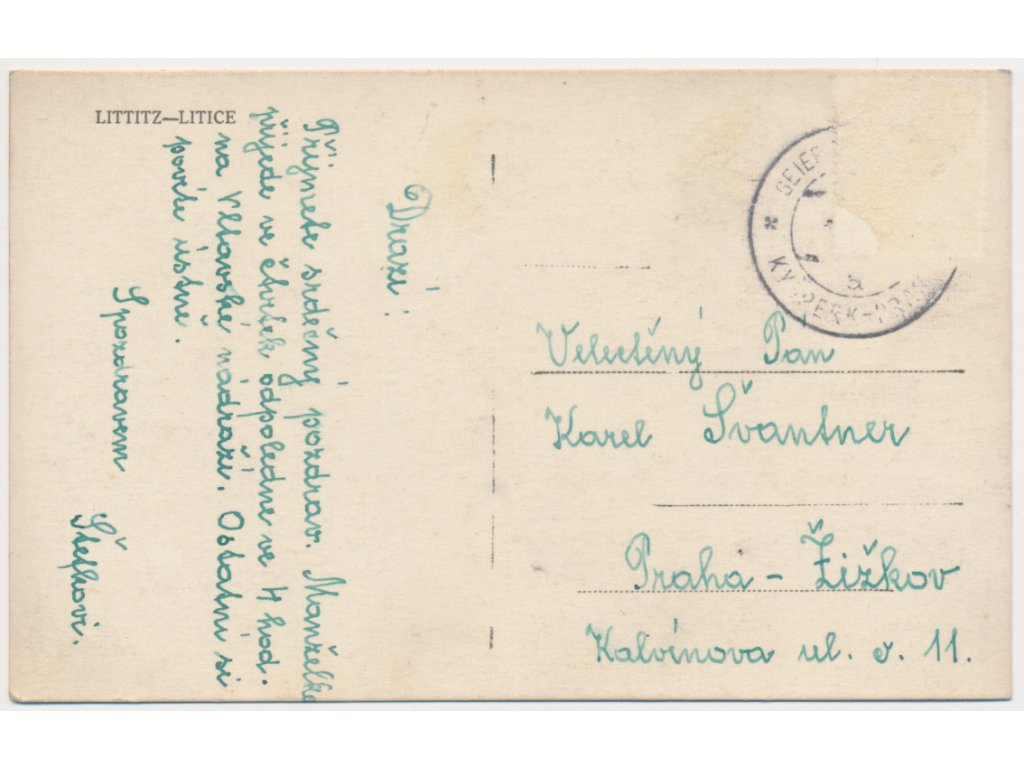 LITTITZ—LITICE
Drazí:
Přijmete srdečný pozdrav. Manželka
přijede ve čtvrtek odpoledne ve 4 hod.
na Vltavské nádraží. Ostatní si
povíte ústně.
S pozdravem
Štefkovi.
GEIER
KYŠPERK
5
Velectěný Pán
Karel Švantner
Praha - Žižkov
Kalvínova ul. č. 11.